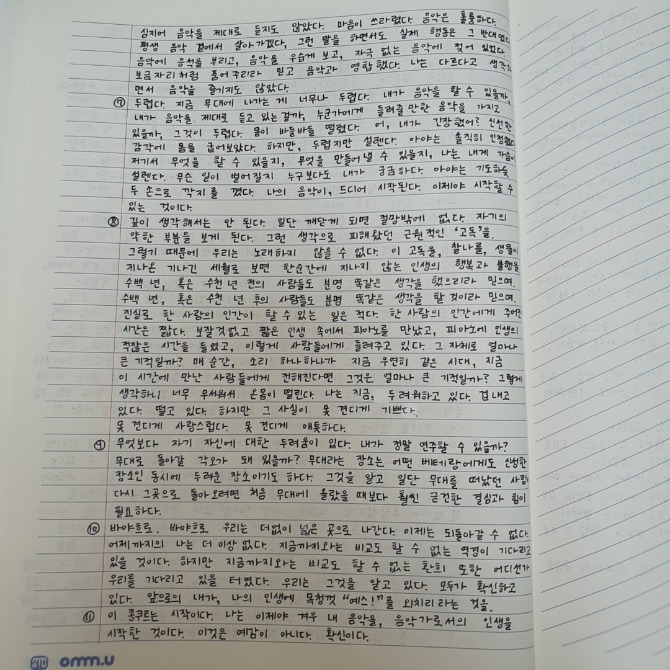 심지어 음악을 제대로 듣지도 않았다. 마음이 쓰라렸다. 음악은 훌륭하다.
평생 음악 곁에서 살아가겠다, 그런 말을 하면서도 실제 행동은 그 반대였다
음악에 응석을 부리고, 음악을 우습게 보고, 자극 없는 음악에 젖어 있었다
보금자리처럼 품어 주리라 믿고 음악과 영합했다. 나는 다르다고 생각
면서 음악을 즐기지도 않았다.
⑦ 두렵다. 지금 무대에 나가는 게 너무나 두렵다. 내가 음악을 할 수 있을까,
내가 음악을 제대로 듣고 있는 걸까, 누군가에게 들려줄 만한 음악을 가지고
있을까, 그것이 두렵다. 몸이 바들바들 떨렸다. 어, 내가 긴장했어? 신선한
감각에 몸을 굽어보았다. 하지만, 두렵지만 설렌다. 아야는 솔직히 인정했다
저기서 무엇을 할 수 있을지, 무엇을 만들어낼 수 있을지, 나는 내게 가슴이
설렌다. 무슨 일이 벌어질지 누구보다도 내가 궁금하다. 아야는 기도하듯
두 손으로 깍지를 꼈다. 나의 음악이, 드디어 시작된다. 이제야 시작할 수
있는 것이다.
⑧ 깊이 생각해서는 안 된다. 일단 깨닫게 되면 절망밖에 없다. 자기의
약한 부분을 보게 된다. 그런 생각으로 피해왔던 근원적인 '고독'을.
그렇기 때문에 우리는 노래하지 않을 수 없다. 이 고독을, 찰나를, 생물이
지나온 기나긴 세월로 보면 한순간에 지나지 않는 인생의 행복과 불행을
수백 년, 혹은 수천 년 전의 사람들도 분명 똑같은 생각을 했으리라 믿으며.
수백 년, 혹은 수천 년 후의 사람들도 분명 똑같은 생각을 할 것이라 믿으며.
진실로 한 사람의 인간이 할 수 있는 일은 적다. 한 사람의 인간에게 주어진
시간은 짧다. 보잘것없고 짧은 인생 속에서 피아노를 만났고, 피아노에 인생의
적잖은 시간을 들였고, 이렇게 사람들에게 들려주고 있다. 그 자체로 얼마나
큰 기적일까? 매 순간, 소리 하나하나가 지금 우연히 같은 시대, 지금
이 시간에 만난 사람들에게 전해진다면 그것은 얼마나 큰 기적일까? 그렇게
생각하니 너무 무서워서 온몸이 떨린다. 나는 지금, 두려워하고 있다. 겁내고
있다. 떨고 있다. 하지만 그 사실이 못 견디게 기쁘다.
못 견디게 사랑스럽다. 못 견디게 애틋하다.
⑨ 무엇보다 자기 자신에 대한 두려움이 있다. 내가 정말 연주할 수 있을까?
무대로 돌아갈 각오가 돼 있을까? 무대라는 장소는 어떤 베테랑에게도 신성한
장소인 동시에 두려운 장소이기도 하다. 그것을 알고 일단 무대를 떠났던 사람
다시 그곳으로 돌아오려면 처음 무대에 올랐을 때보다 훨씬 굳건한 결심과 힘이
필요하다.
⑩ 바야흐로. 바야흐로 우리는 더없이 넓은 곳으로 나간다. 이제는 되돌아갈 수 없다.
어제까지의 나는 더 이상 없다. 지금까지와는 비교도 할 수 없는 역경이 기다리고
있을 것이다. 하지만 지금까지와는 비교도 할 수 없는 환희 또한 어디선가
우리를 기다리고 있을 터였다. 우리는 그것을 알고 있다. 모두가 확신하고
있다. 앞으로의 내가, 나의 인생에 목청껏 "예스!"를 외치리라는 것을.
⑪ 이 콩쿠르는 시작이다. 나는 이제야 겨우 내 음악을, 음악가로서의 인생을
시작한 것이다. 이것은 예감이 아니다. 확신이다.
omm.u